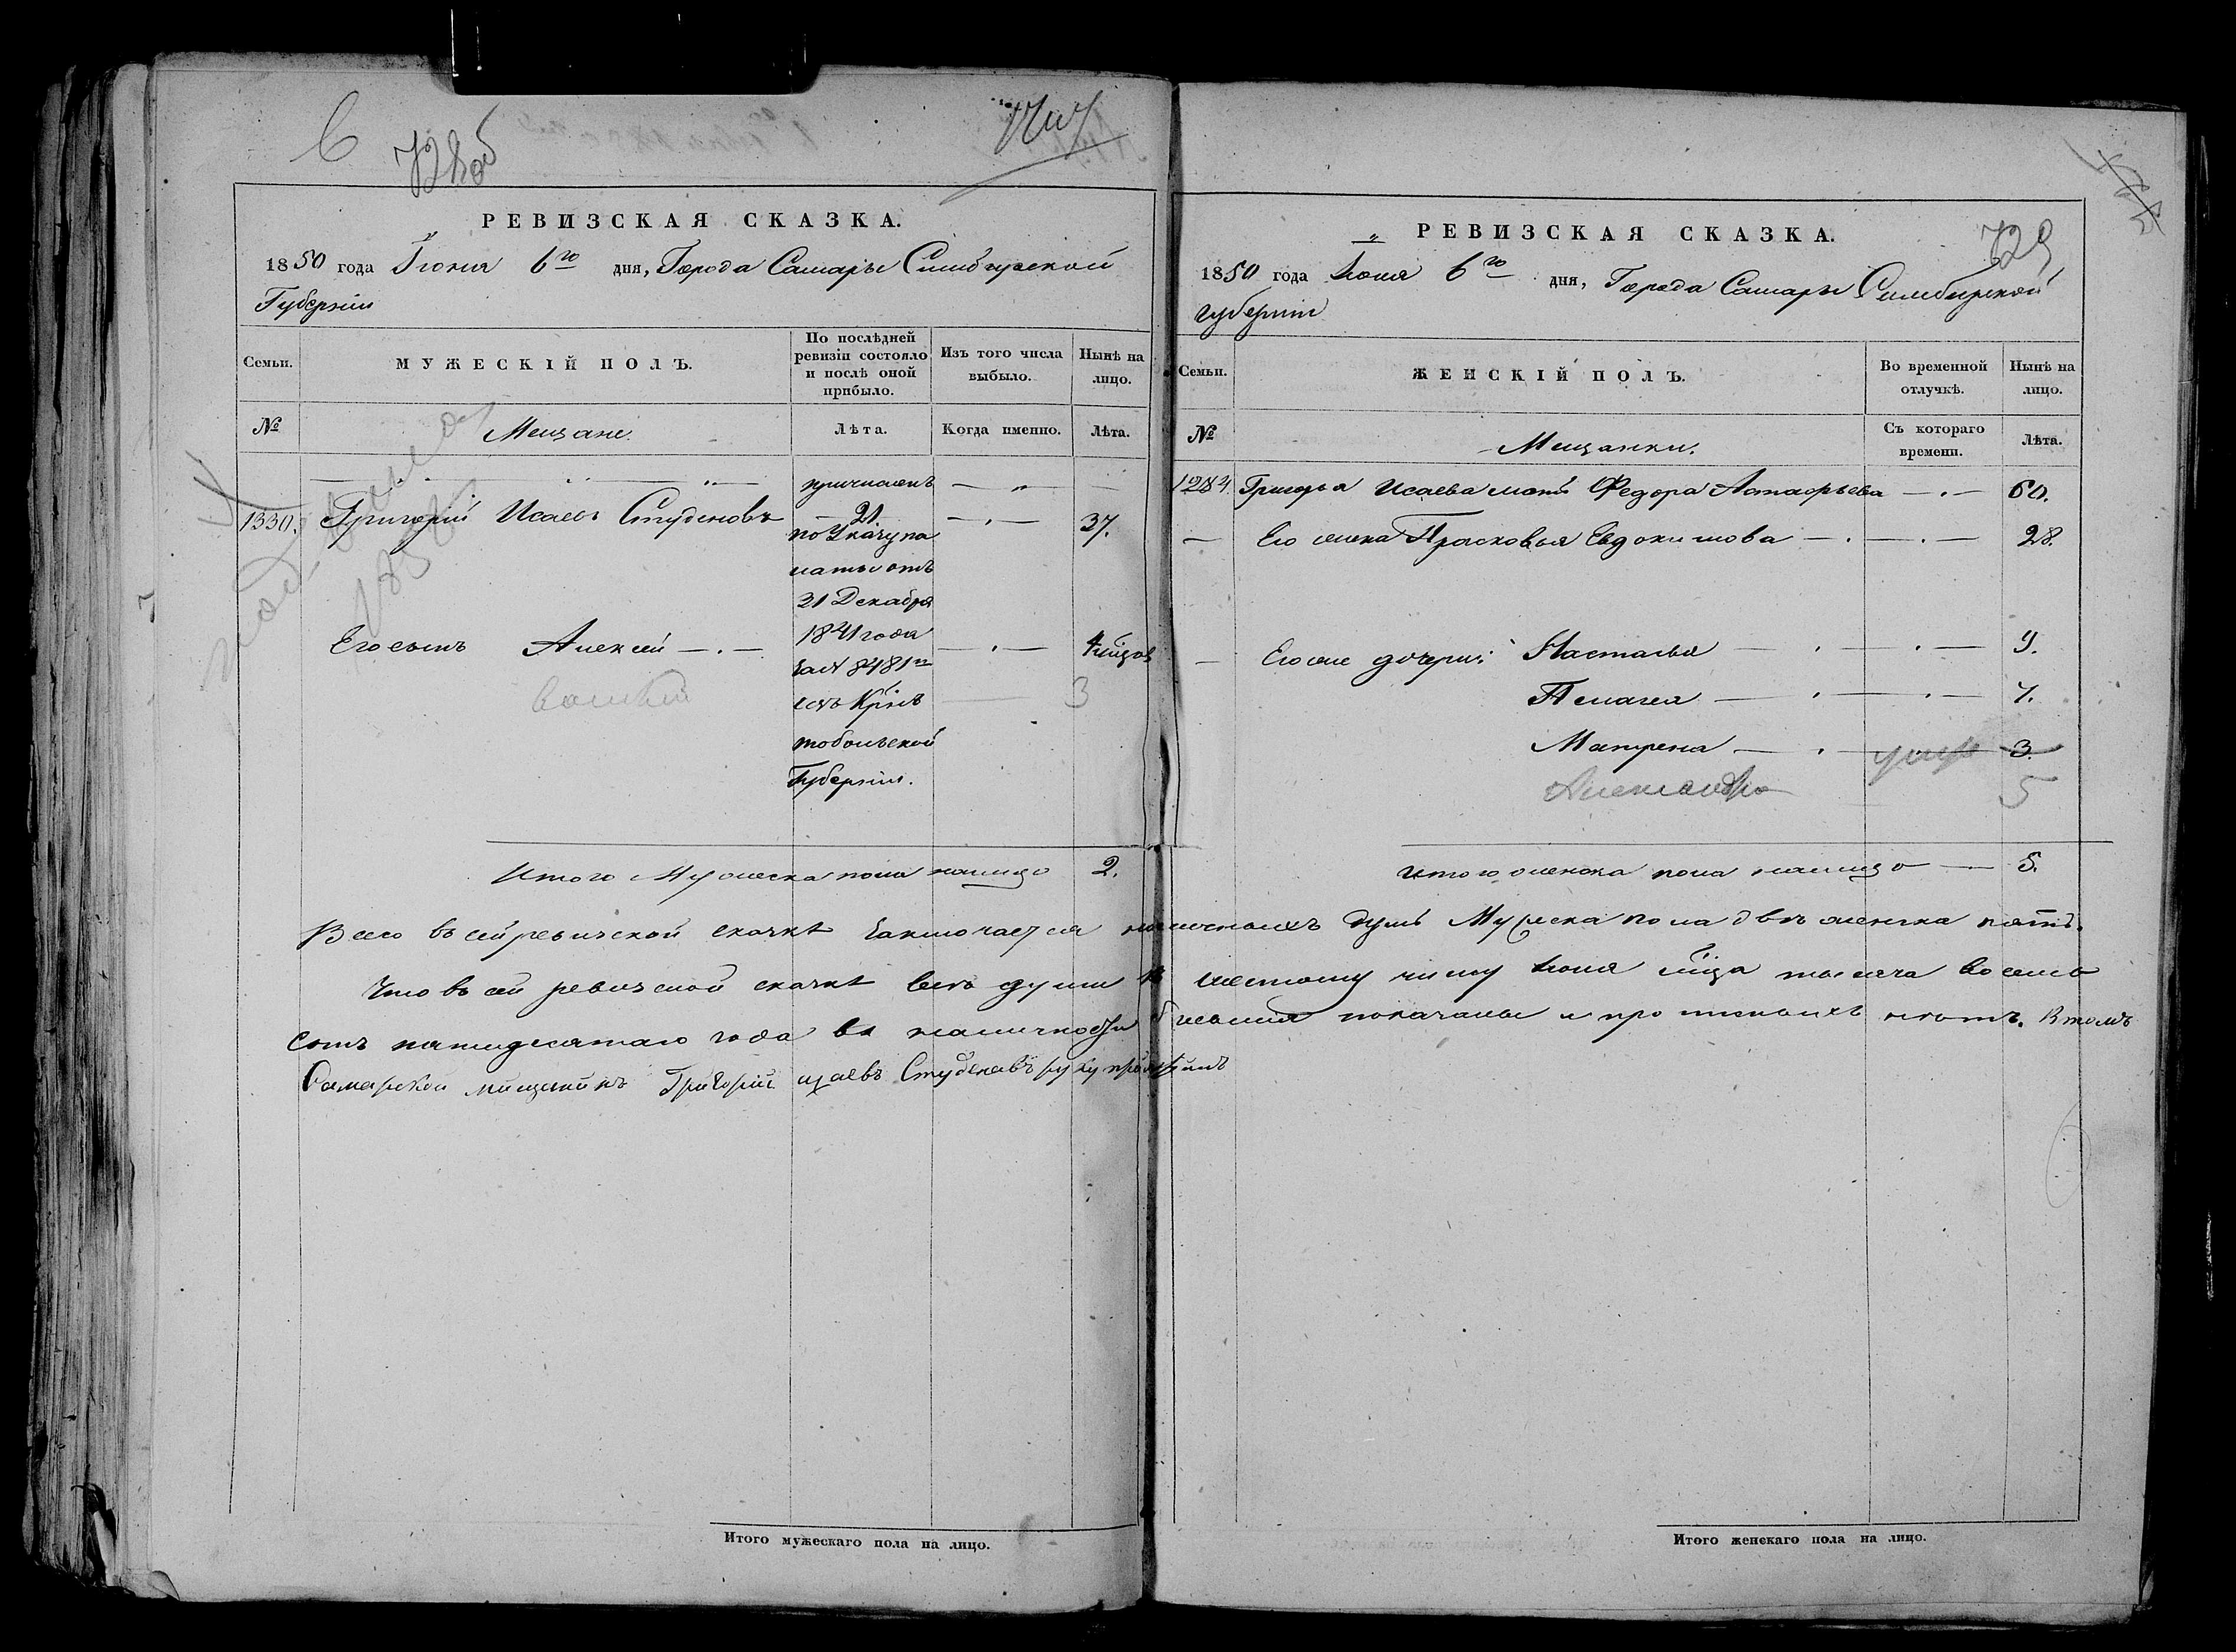 728 об
РЕВИЗСКАЯ СКАЗКА.
1850 года Іюня 6го дня, Города Самары Симбирской
Губерніи
Семьи.
МУЖЕСКІЙ ПОЛЪ.
По послѣдней
ревизіи состояло
и послѣ оной
прибыло.
Изъ того числа
выбыло.
Нынѣ на
лицо.
№
Мещане.
Лѣта.
Когда именно.
Лѣта.
причисленъ
1330. Григорій Исаевъ Студеновъ 21 37.
по Указу па
латы отъ
31 Декабря
Его сынъ Алексей 1841 года 4 мцов
за № 8481м
изъ Крнъ 3
тобольской
Губерніи.
Итого Мужеска пола налицо 2.
729
РЕВИЗСКАЯ СКАЗКА.
1850 года Іюня 6го дня, Города Самары Симбирской
губерніи
Семьи.
ЖЕНСКІЙ ПОЛЪ.
Во временной
отлучкѣ.
Нынѣ на
лицо.
№
Мещанки.
Съ котораго
времени.
Лѣта.
1284. Григорья Исаева мать Федора Астафьева 60.
Его жена Прасковья Евдокимова 28.
Его же дочери: Настасья 9.
Пелагея 7.
Матрена 3.
Александра 5
Итого женска пола налицо 5.
Всего въ сей ревизской сказке заключается наличныхъ душъ Мужеска пола двѣ женска пять.
Что въ сей ревизской сказке все души къ шестому числу Іюня мца тысяча восемь
сотъ пятидесятаго года въ наличности бывшия показаны и прописныхъ нетъ. В томъ
Самарской мищанинъ Григорій изаевъ Студенавъ руку приложилъ
Итого мужескаго пола на лицо.
Итого женскаго пола на лицо.